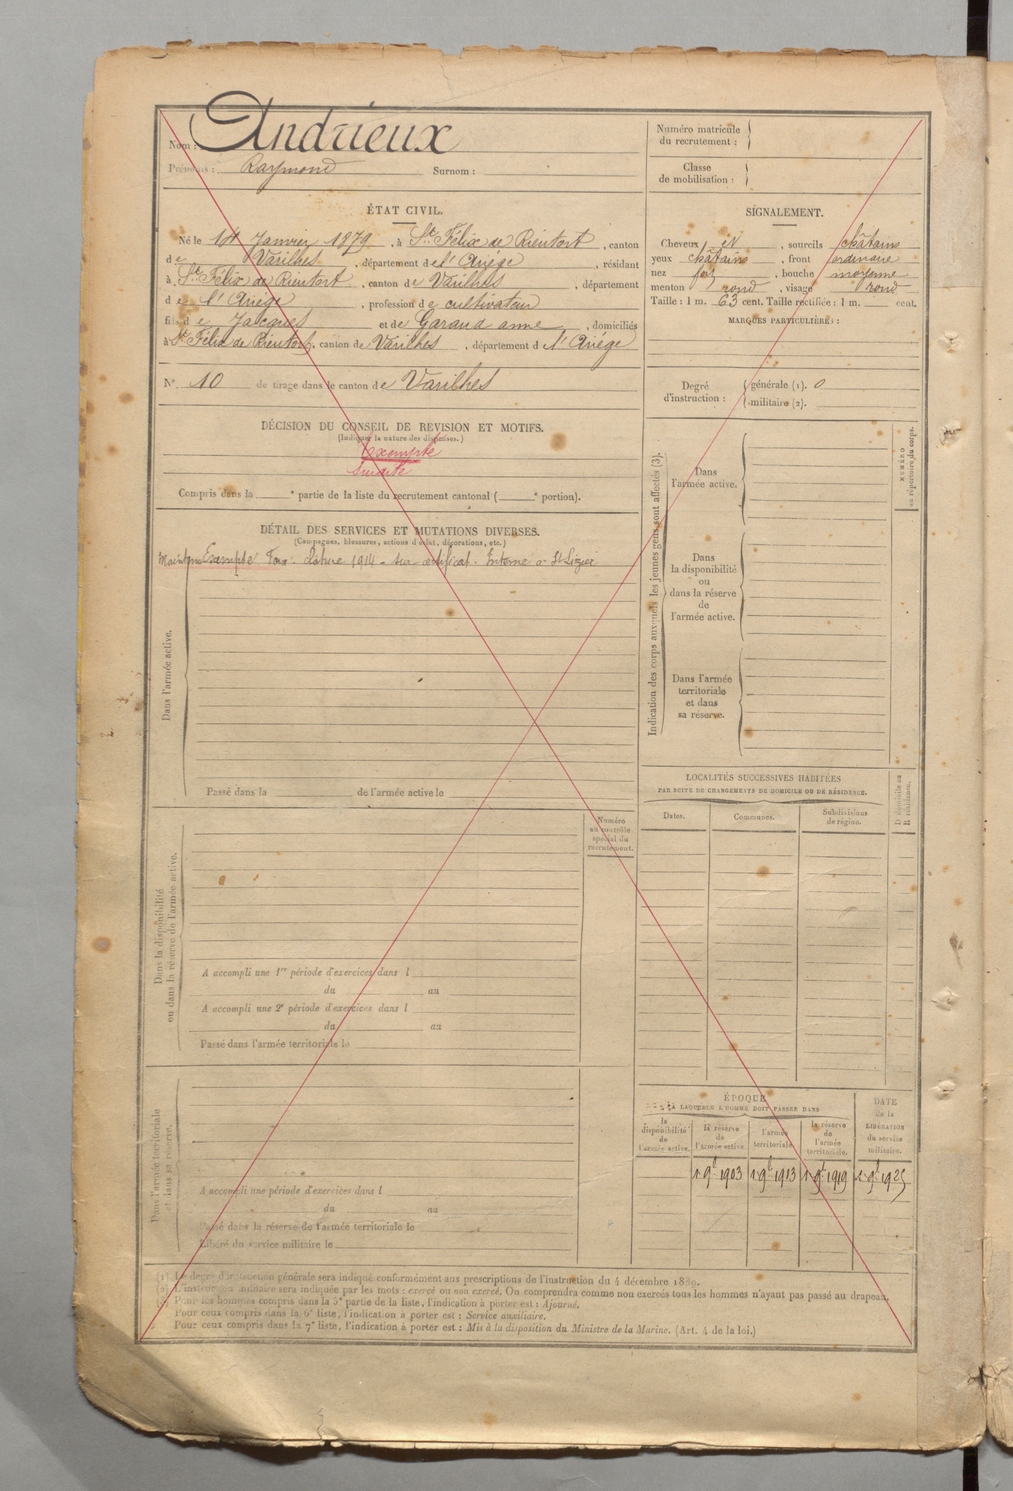 Nom : Andrieux
Prénoms : Raymond Surnom :
Numéro matricule
du recrutement :
Classe
de mobilisation :
ÉTAT CIVIL.
Né le 1er Janvier 1879, à St Félix de Rieutort, canton
de Varilhes, département de l'Ariège, résidant
à St Félix de Rieutort, canton de Varilhes, département
de l'Ariège, profession de cultivateur
fils de Jacques et de Garaud anne, domiciliés
à St Félix de Rieutort, canton de Varilhes, département de l'Ariège
N° 10 de tirage dans le canton de Varilhes
SIGNALEMENT.
Cheveux et, sourcils châtains
yeux châtains, front ordinaire
nez, bouche moyenne
menton rond, visage rond
Taille : 1 m. 63 cent. Taille rectifiée : 1 m. cent.
MARQUES PARTICULIÈRES :
Degré
d'instruction :
générale (1). 0
militaire (2).
DÉCISION DU CONSEIL DE REVISION ET MOTIFS.
(Indiquer la nature des dispenses.)
Exempté
Surdité
Compris dans la e partie de la liste du recrutement cantonal ( e portion).
DÉTAIL DES SERVICES ET MUTATIONS DIVERSES.
(Campagnes, blessures, actions d'éclat, décorations, etc.)
Maintenu Exempté 1914 - sur certificat. Interné à St Lizier
Dans l'armée active.
Passé dans la de l'armée active le
Indication des corps auxquels les jeunes gens sont affectés (3).
Dans
l'armée active.
Dans
la disponibilité
ou
dans la réserve
de
l'armée active.
Dans l'armée
territoriale
et dans
sa réserve.
NUMÉRO
au répertoire du corps.
LOCALITÉS SUCCESSIVES HABITÉES
PAR SUITE DE CHANGEMENTS DE DOMICILE OU DE RÉSIDENCE.
Dates.
Communes.
Subdivisions
de région.
D domicile ou
R résidence.
Numéro
au contrôle
spécial du
recrutement.
Dans la disponibilité
ou dans la réserve de l'armée active.
A accompli une 1re période d'exercices dans l
du au
A accompli une 2e période d'exercices dans l
du au
Passé dans l'armée territoriale le
Dans l'armée territoriale
et dans sa réserve.
A accompli une période d'exercices dans l
du au
Passé dans la réserve de l'armée territoriale le
Libéré du service militaire le
ÉPOQUE
À LAQUELLE L'HOMME DOIT PASSER DANS
la
disponibilité
de
l'armée active.
la réserve
de
l'armée active.
l'armée
territoriale.
la réserve
de
l'armée
territoriale.
DATE
de la
LIBÉRATION
du service
militaire.
1r 9b 1903 1r 9b 1913 1r 9b 1919 1r 9b 1925
(1) Le degré d'instruction générale sera indiqué conformément aux prescriptions de l'instruction du 4 décembre 1889.
(2) L'instruction militaire sera indiquée par les mots : exercé ou non exercé. On comprendra comme non exercés tous les hommes n'ayant pas passé au drapeau.
(3) Pour les hommes compris dans la 5e partie de la liste, l'indication à porter est : Ajourné.
Pour ceux compris dans la 6e liste, l'indication à porter est : Service auxiliaire.
Pour ceux compris dans la 7e liste, l'indication à porter est : Mis à la disposition du Ministre de la Marine. (Art. 4 de la loi.)